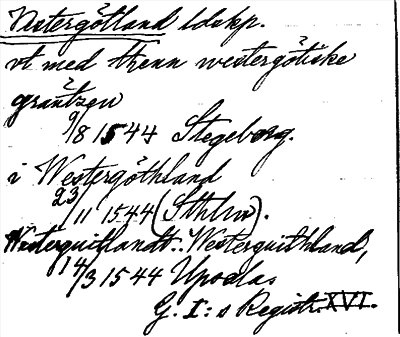 Västergötland ldskp.
vt med thenn westergötiske
gräntzen
9/8 1544 Stegeborg.
i Westergöthland
23/11 1544 (Sthlm).
Westerguthlandt.. Westerguthland,
14/3 1544 Upsala.
G. I:s Registr. XVI.